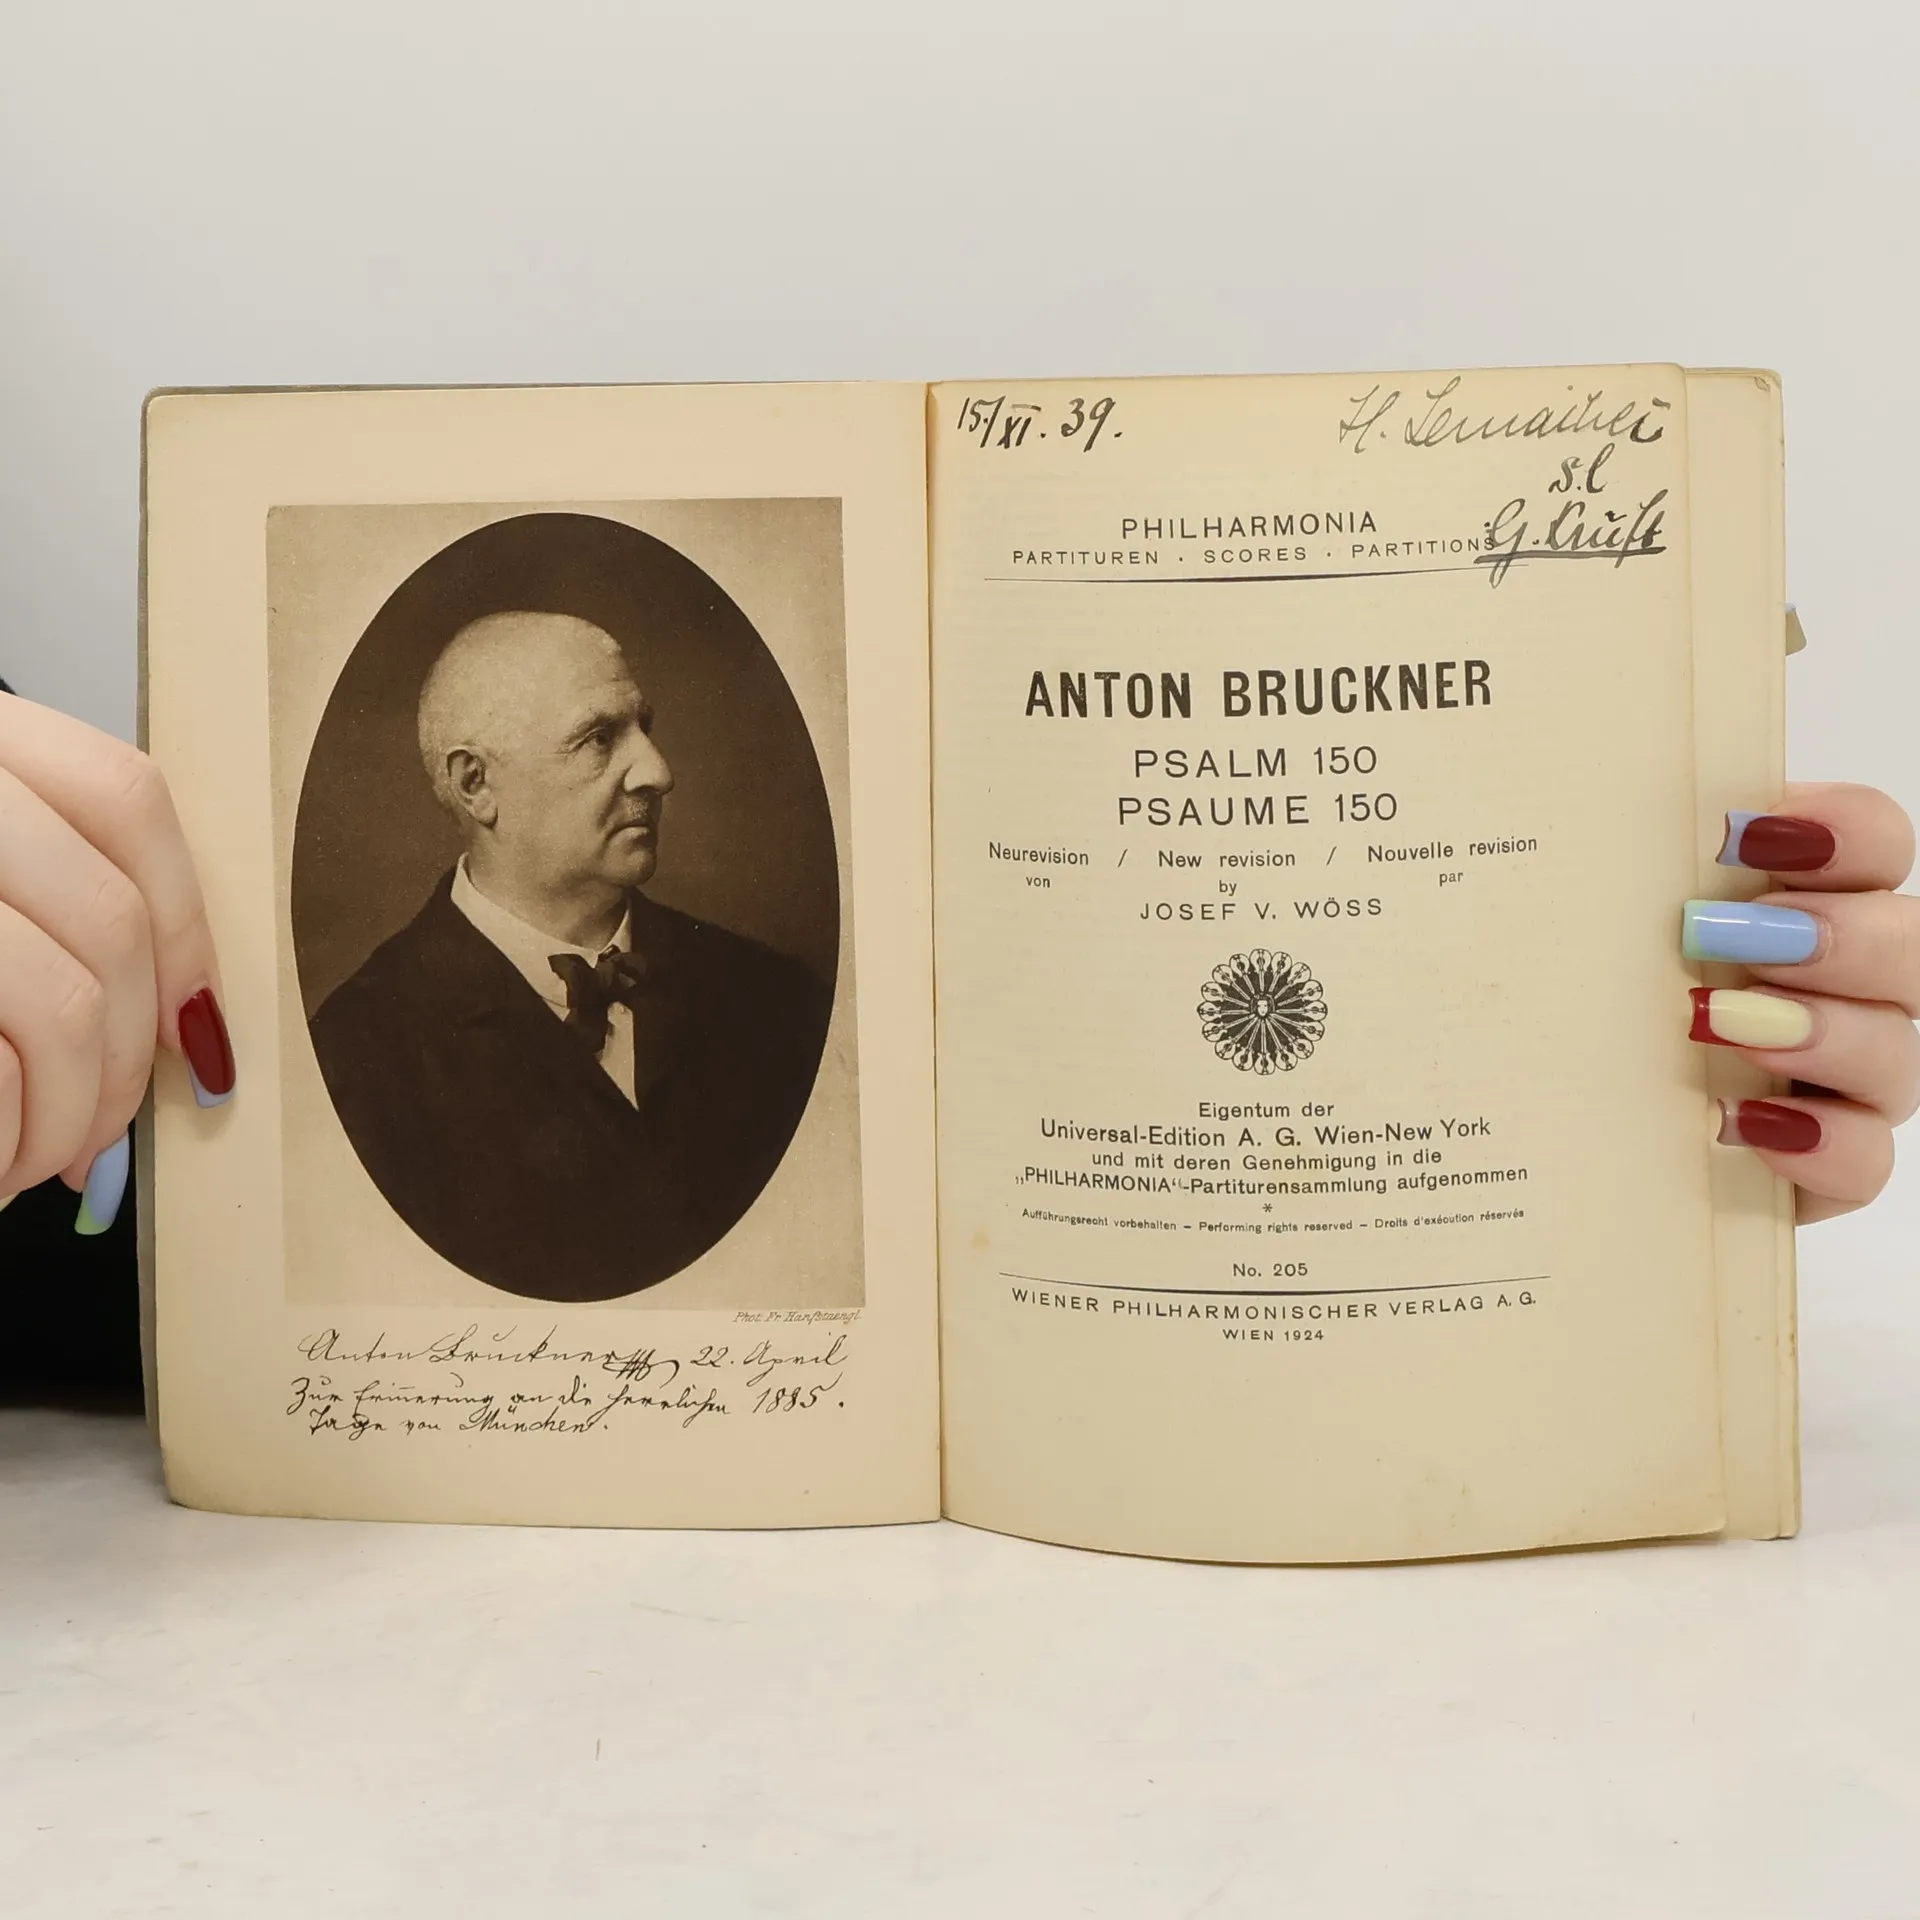 Phot. Fr. Hanfstaengl.
Anton Bruckner 22. April
Zur Erinnerung an die herrlichen 1885.
Tage von München.
15./XI. 39.
H. Lemacher
s.l
G. Kruft
PHILHARMONIA
PARTITUREN · SCORES · PARTITIONS
ANTON BRUCKNER
PSALM 150
PSAUME 150
Neurevision / New revision / Nouvelle revision
von by par
JOSEF V. WÖSS
Eigentum der
Universal-Edition A. G. Wien-New York
und mit deren Genehmigung in die
„PHILHARMONIA“-Partiturensammlung aufgenommen
*
Aufführungsrecht vorbehalten – Performing rights reserved – Droits d'exécution réservés
No. 205
WIENER PHILHARMONISCHER VERLAG A. G.
WIEN 1924